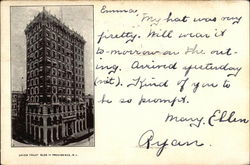 Emma
My hat was very
pretty. Will wear it
to-morrow on the out-
ing. Arrived yesterday
(nit). Kind of you to
be so prompt.
Mary Ellen
Ryan.
UNION TRUST BLDG PROVIDENCE, R. I.